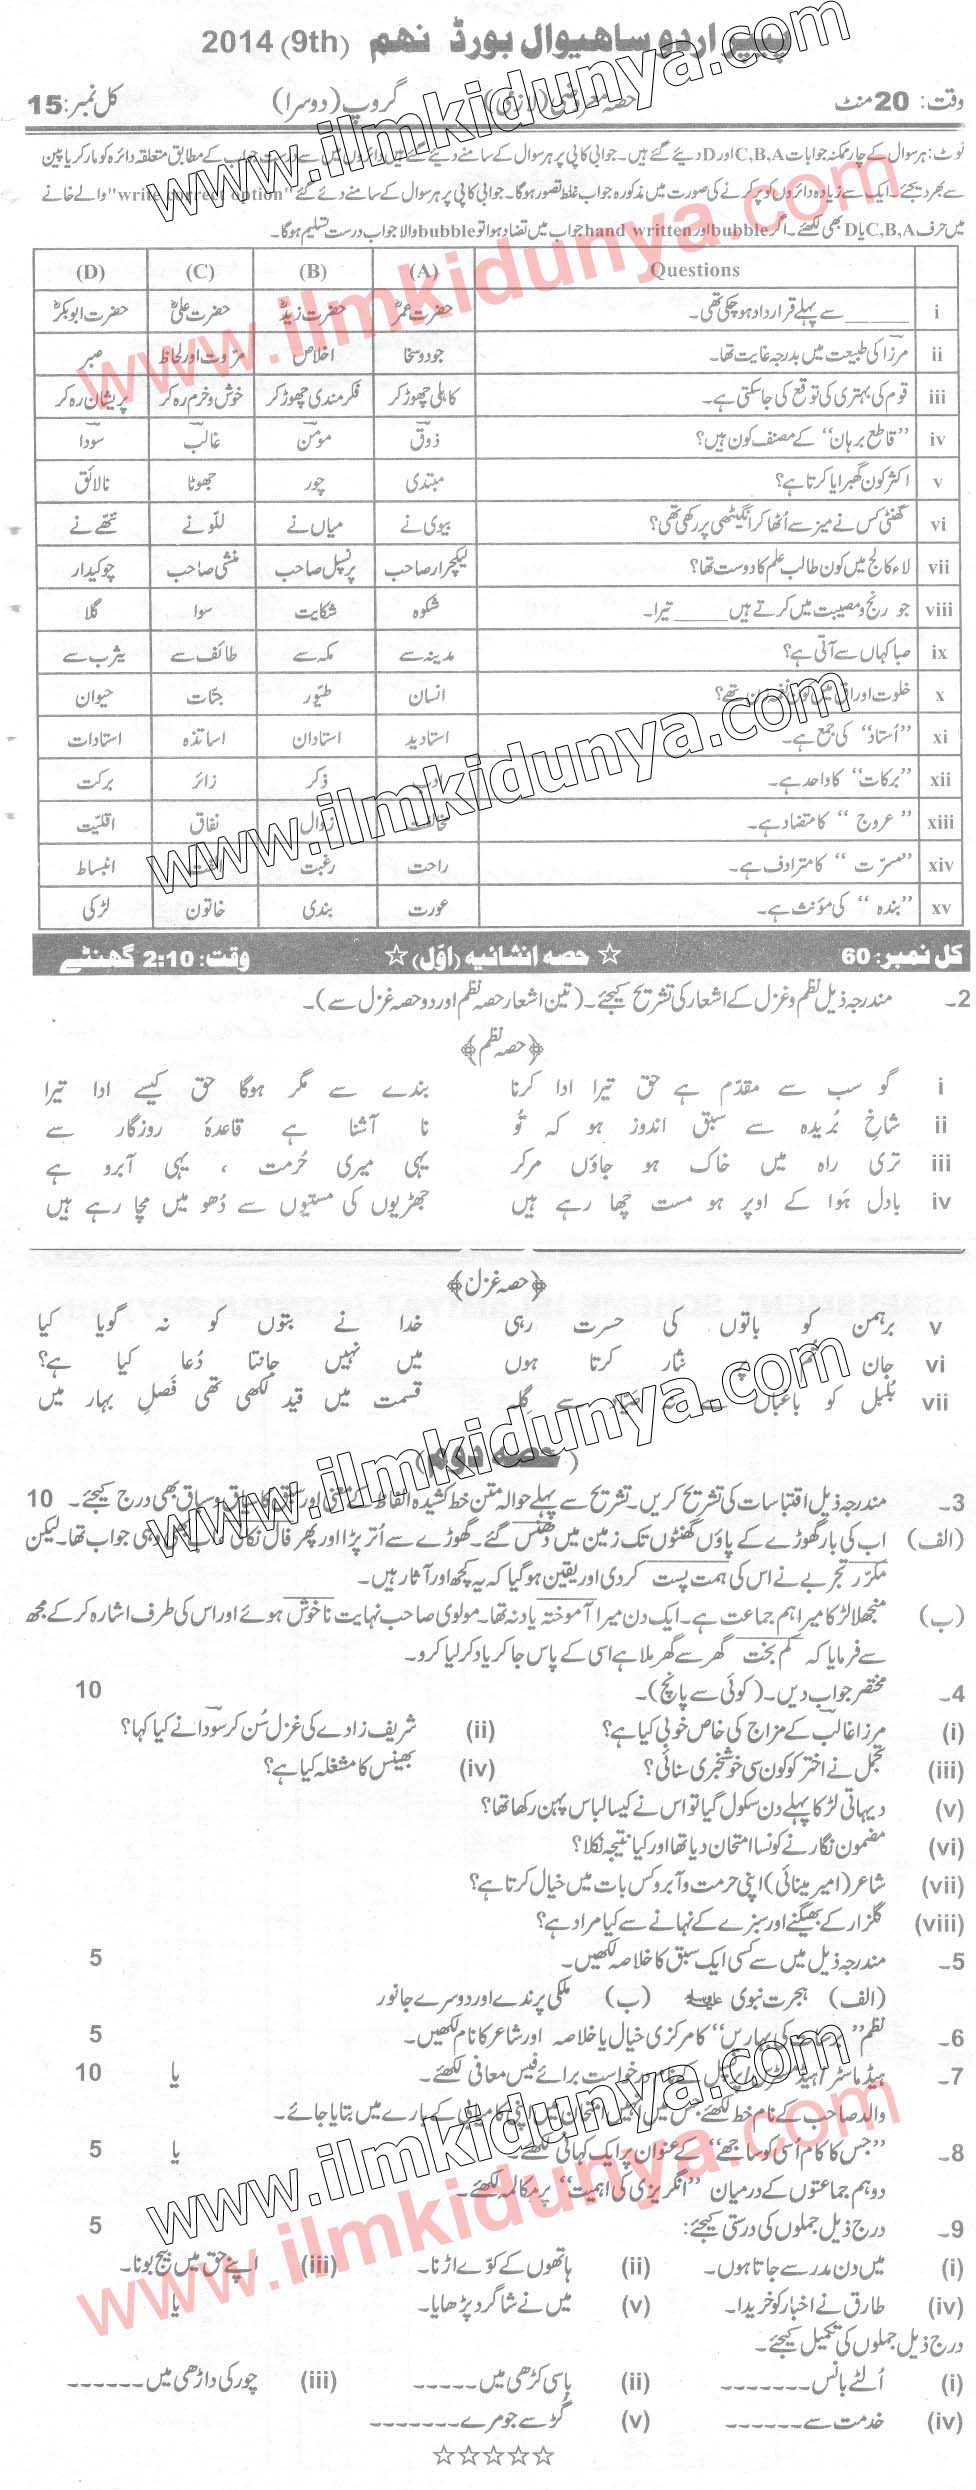 پیپر اردو ساھیوال بورڈ نھم (9th) 2014
وقت: 20 منٹ حصہ معروضی (لازمی) گروپ (دوسرا) کل نمبر: 15
نوٹ: ہر سوال کے چار ممکنہ جوابات C,B,A اور D دیئے گئے ہیں۔ جوابی کاپی پر ہر سوال کے سامنے دیئے گئے دائروں میں سے درست جواب کے مطابق متعلقہ دائرہ کو مارکر یا پین
سے بھر دیجئے۔ ایک سے زیادہ دائروں کو پُر کرنے کی صورت میں مذکورہ جواب غلط تصور ہوگا۔ جوابی کاپی پر ہر سوال کے سامنے دئے گئے "write correct option" والے خانے
میں حرف C,B,A یا D بھی لکھئے۔ اگر bubble اور hand written جواب میں تضاد ہوا تو bubble والا جواب درست تسلیم ہوگا۔
Questions (A) (B) (C) (D)
i ______ سے پہلے قرارداد ہوچکی تھی۔ حضرت عمرؓ حضرت زیدؓ حضرت علیؓ حضرت ابوبکرؓ
ii مرزا کی طبیعت میں بدرجہ غایت تھا۔ جودوسخا اخلاص مروّت اور لحاظ صبر
iii قوم کی بہتری کی توقع کی جاسکتی ہے۔ کاہلی چھوڑ کر فکرمندی چھوڑ کر خوش وخرم رہ کر پریشان رہ کر
iv ”قاطع برہان“ کے مصنف کون ہیں؟ ذوق مومن غالب سودا
v اکثر کون گھبرایا کرتا ہے؟ مبتدی چور جھوٹا نالائق
vi گھنٹی کس نے میز سے اُٹھا کر انگیٹھی پر رکھی تھی؟ بیوی نے میاں نے للّو نے ننھے نے
vii لاء کالج میں کون طالب علم کا دوست تھا؟ لیکچرار صاحب پرنسپل صاحب منشی صاحب چوکیدار
viii جو رنج و مصیبت میں کرتے ہیں _____ تیرا۔ شکوہ شکایت سوا گلا
ix صبا کہاں سے آتی ہے؟ مدینہ سے مکہ سے طائف سے یثرب سے
x خلوت اوراق میں کون نغمہ زن تھے؟ انسان طیّور جنّات حیوان
xi ”اُستاد“ کی جمع ہے۔ استادید استادان اساتذہ استادات
xii ”برکات“ کا واحد ہے۔ ذکر زائر برکت
xiii ”عروج“ کا متضاد ہے۔ زوال نفاق اقلیّت
xiv ”مسرّت“ کا مترادف ہے۔ راحت رغبت انبساط
xv ”بندہ“ کی مؤنث ہے۔ عورت بندی خاتون لڑکی
کل نمبر: 60 ☆ حصہ انشائیہ (اوّل) ☆ وقت: 2:10 گھنٹے
2۔ مندرجہ ذیل نظم و غزل کے اشعار کی تشریح کیجئے۔ (تین اشعار حصہ نظم اور دو حصہ غزل سے)۔
﴿حصہ نظم﴾
i گو سب سے مقدّم ہے حق تیرا ادا کرنا بندے سے مگر ہوگا حق کیسے ادا تیرا
ii شاخِ بُریدہ سے سبق اندوز ہو کہ تُو نا آشنا ہے قاعدۂ روزگار سے
iii تری راہ میں خاک ہو جاؤں مرکر یہی میری حُرمت ، یہی آبرو ہے
iv بادل ہَوا کے اوپر ہو مست چھا رہے ہیں جھڑیوں کی مستیوں سے دُھومیں مچا رہے ہیں
﴿حصہ غزل﴾
v برہمن کو باتوں کی حسرت رہی خدا نے بتوں کو نہ گویا کیا
vi جان تم پر نثار کرتا ہوں میں نہیں جانتا دُعا کیا ہے؟
vii بُلبل کو باغباں سے نہ صیّاد سے گِلہ قسمت میں قید لکھی تھی فَصلِ بہار میں
(حصہ دوم)
3۔ مندرجہ ذیل اقتباسات کی تشریح کریں۔ تشریح سے پہلے حوالہ متن خط کشیدہ الفاظ کے معنی اور سبق کا سیاق و سباق بھی درج کیجئے۔ 10
(الف) اب کی بار گھوڑے کے پاؤں گھٹنوں تک زمین میں دھنس گئے۔ گھوڑے سے اُتر پڑا اور پھر فال نکالی اب بھی وہی جواب تھا۔ لیکن
مکرّر تجربے نے اس کی ہمت پست کردی اور یقین ہوگیا کہ یہ کچھ اور آثار ہیں۔
(ب) منجھلا لڑکا میرا ہم جماعت ہے۔ ایک دن میرا آموختہ یاد نہ تھا۔ مولوی صاحب نہایت ناخوش ہوئے اور اس کی طرف اشارہ کرکے مجھ
سے فرمایا کہ کم بخت گھر سے گھر ملا ہے اسی کے پاس جاکر یاد کرلیا کرو۔
4۔ مختصر جواب دیں۔ (کوئی سے پانچ)۔ 10
(i) مرزا غالب کے مزاج کی خاص خوبی کیا ہے؟ (ii) شریف زادے کی غزل سُن کر سودا نے کیا کہا؟
(iii) تجمل نے اختر کو کون سی خوشخبری سنائی؟ (iv) بھینس کا مشغلہ کیا ہے؟
(v) دیہاتی لڑکا پہلے دن سکول گیا تو اس نے کیسا لباس پہن رکھا تھا؟
(vi) مضمون نگار نے کونسا امتحان دیا تھا اور کیا نتیجہ نکلا؟
(vii) شاعر (امیر مینائی) اپنی حرمت و آبرو کس بات میں خیال کرتا ہے؟
(viii) گلزار کے بھیگنے اور سبزے کے نہانے سے کیا مراد ہے؟
5۔ مندرجہ ذیل میں سے کسی ایک سبق کا خلاصہ لکھیں۔ 5
(الف) ہجرت نبوی ﷺ (ب) ملکی پرندے اور دوسرے جانور
6۔ نظم ”برسات کی بہاریں“ کا مرکزی خیال یا خلاصہ اور شاعر کا نام لکھیں۔ 5
7۔ ہیڈ ماسٹر/ہیڈ مسٹریس/پرنسپل کے نام درخواست برائے فیس معافی لکھئے۔ یا 10
والد صاحب کے نام خط لکھئے جس میں انہیں امتحان میں اپنی کامیابی کے بارے میں بتایا جائے۔
8۔ ”جس کا کام اُسی کو ساجھے“ کے عنوان پر ایک کہانی لکھئے۔ یا 5
دو ہم جماعتوں کے درمیان ”انگریزی کی اہمیت“ پر مکالمہ لکھئے۔
9۔ درج ذیل جملوں کی درستی کیجئے: 5
(i) میں دن مدرسے جاتا ہوں۔ (ii) ہاتھوں کے کوّے اڑنا۔ (iii) اپنے حق میں بیج بونا۔
(iv) طارق نے اخبار کو خریدا۔ (v) میں نے شاگرد پڑھایا۔ یا
درج ذیل جملوں کی تکمیل کیجئے۔
(i) اُلٹے بانس ------- (ii) باسی کڑھی میں ----- (iii) چور کی داڑھی میں ------
(iv) خدمت سے ------ (v) گڑ سے جو مرے -------
☆☆☆☆☆
www.ilmkidunya.com
www.ilmkidunya.com
www.ilmkidunya.com
www.ilmkidunya.com
www.ilmkidunya.com
www.ilmkidunya.com